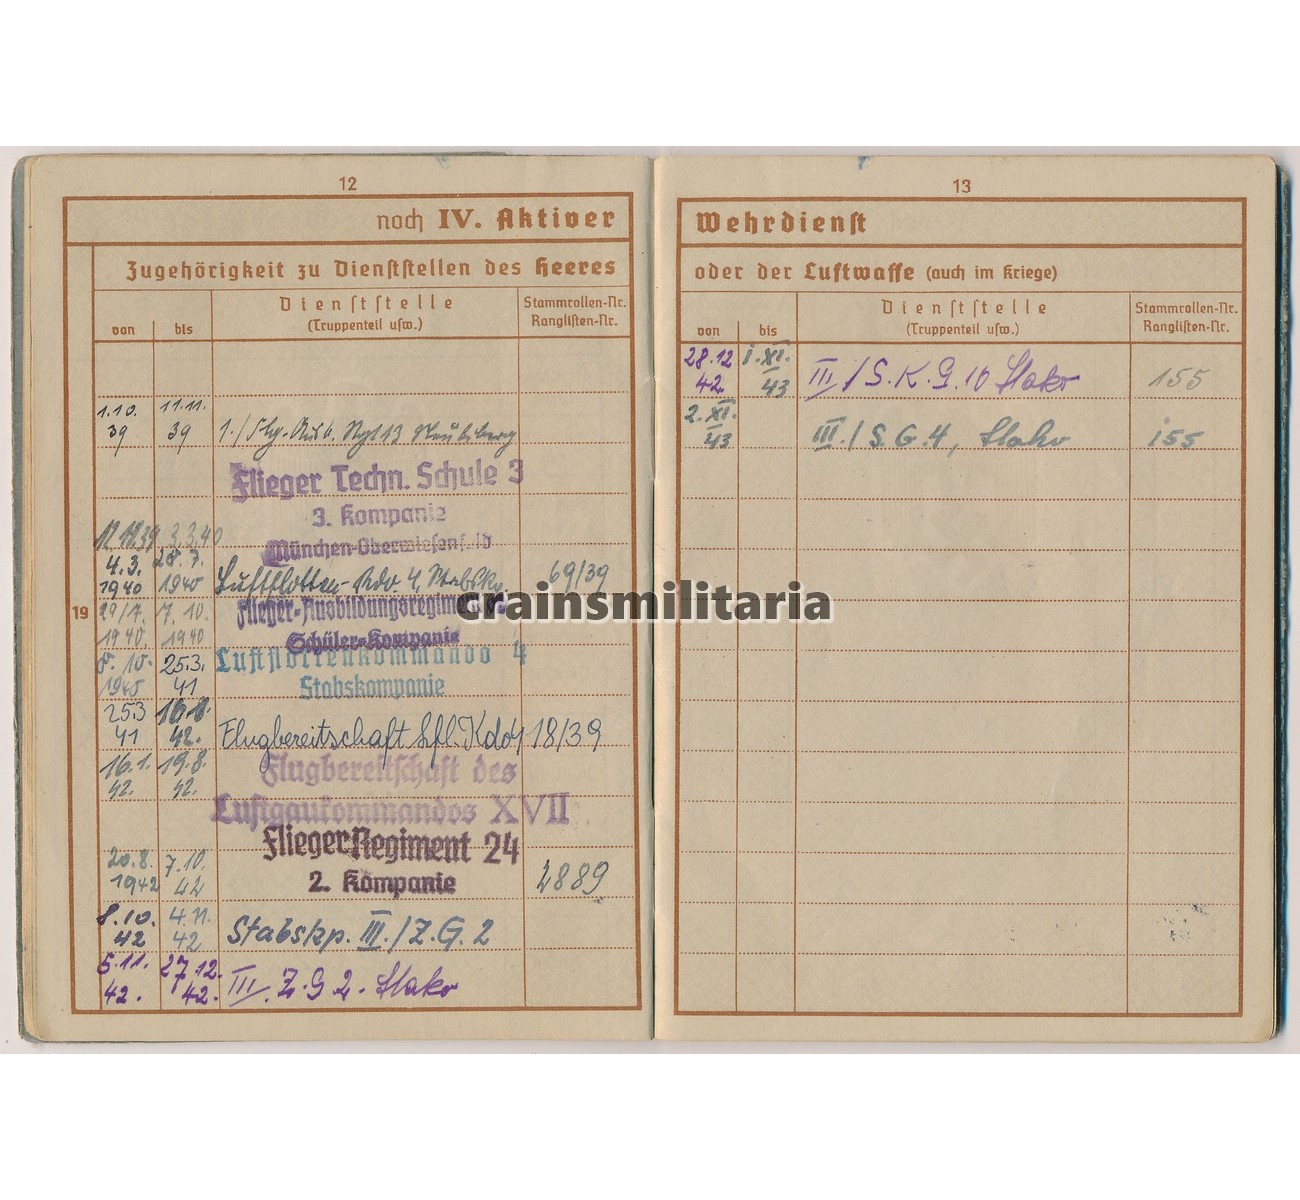 12
noch IV. Aktiver
Zugehörigkeit zu Dienststellen des Heeres
von
bis
Dienststelle
(Truppenteil usw.)
Stammrollen-Nr.
Ranglisten-Nr.
19
1.10. 39
11.11. 39
1./Flg. Ausb. Rgt 13 Neubiberg
Flieger Techn. Schule 3
3. Kompanie
München-Oberwiesenfeld
12.11.39
3.3.40
4.3. 1940
28.7. 1940
Luftflotten-Kdo. 4, Stabskp.
69/39
29/7. 1940.
7.10. 1940
Flieger-Ausbildungsregiment
Schüler-Kompanie
8.10. 1940
25.3. 41
Luftflottenkommando 4
Stabskompanie
25.3 41
16.1. 42.
Flugbereitschaft Lfl. Kdo 4
18/39
16.1. 42.
19.8. 42.
Flugbereitschaft des
Luftgaukommandos XVII
20.8. 1942
7.10. 42
Flieger Regiment 24
2. Kompanie
2889
8.10. 42
4.11. 42
Stabskp. III./Z.G. 2
5.11. 42.
27.12. 42.
III. Z.G 2. Stako
13
Wehrdienst
oder der Luftwaffe (auch im Kriege)
von
bis
Dienststelle
(Truppenteil usw.)
Stammrollen-Nr.
Ranglisten-Nr.
28.12 42
1.XI. 43
III/S.K.G.10 Stako
155
2.XI. 43
III./S.G.4, Stako
155
crainsmilitaria